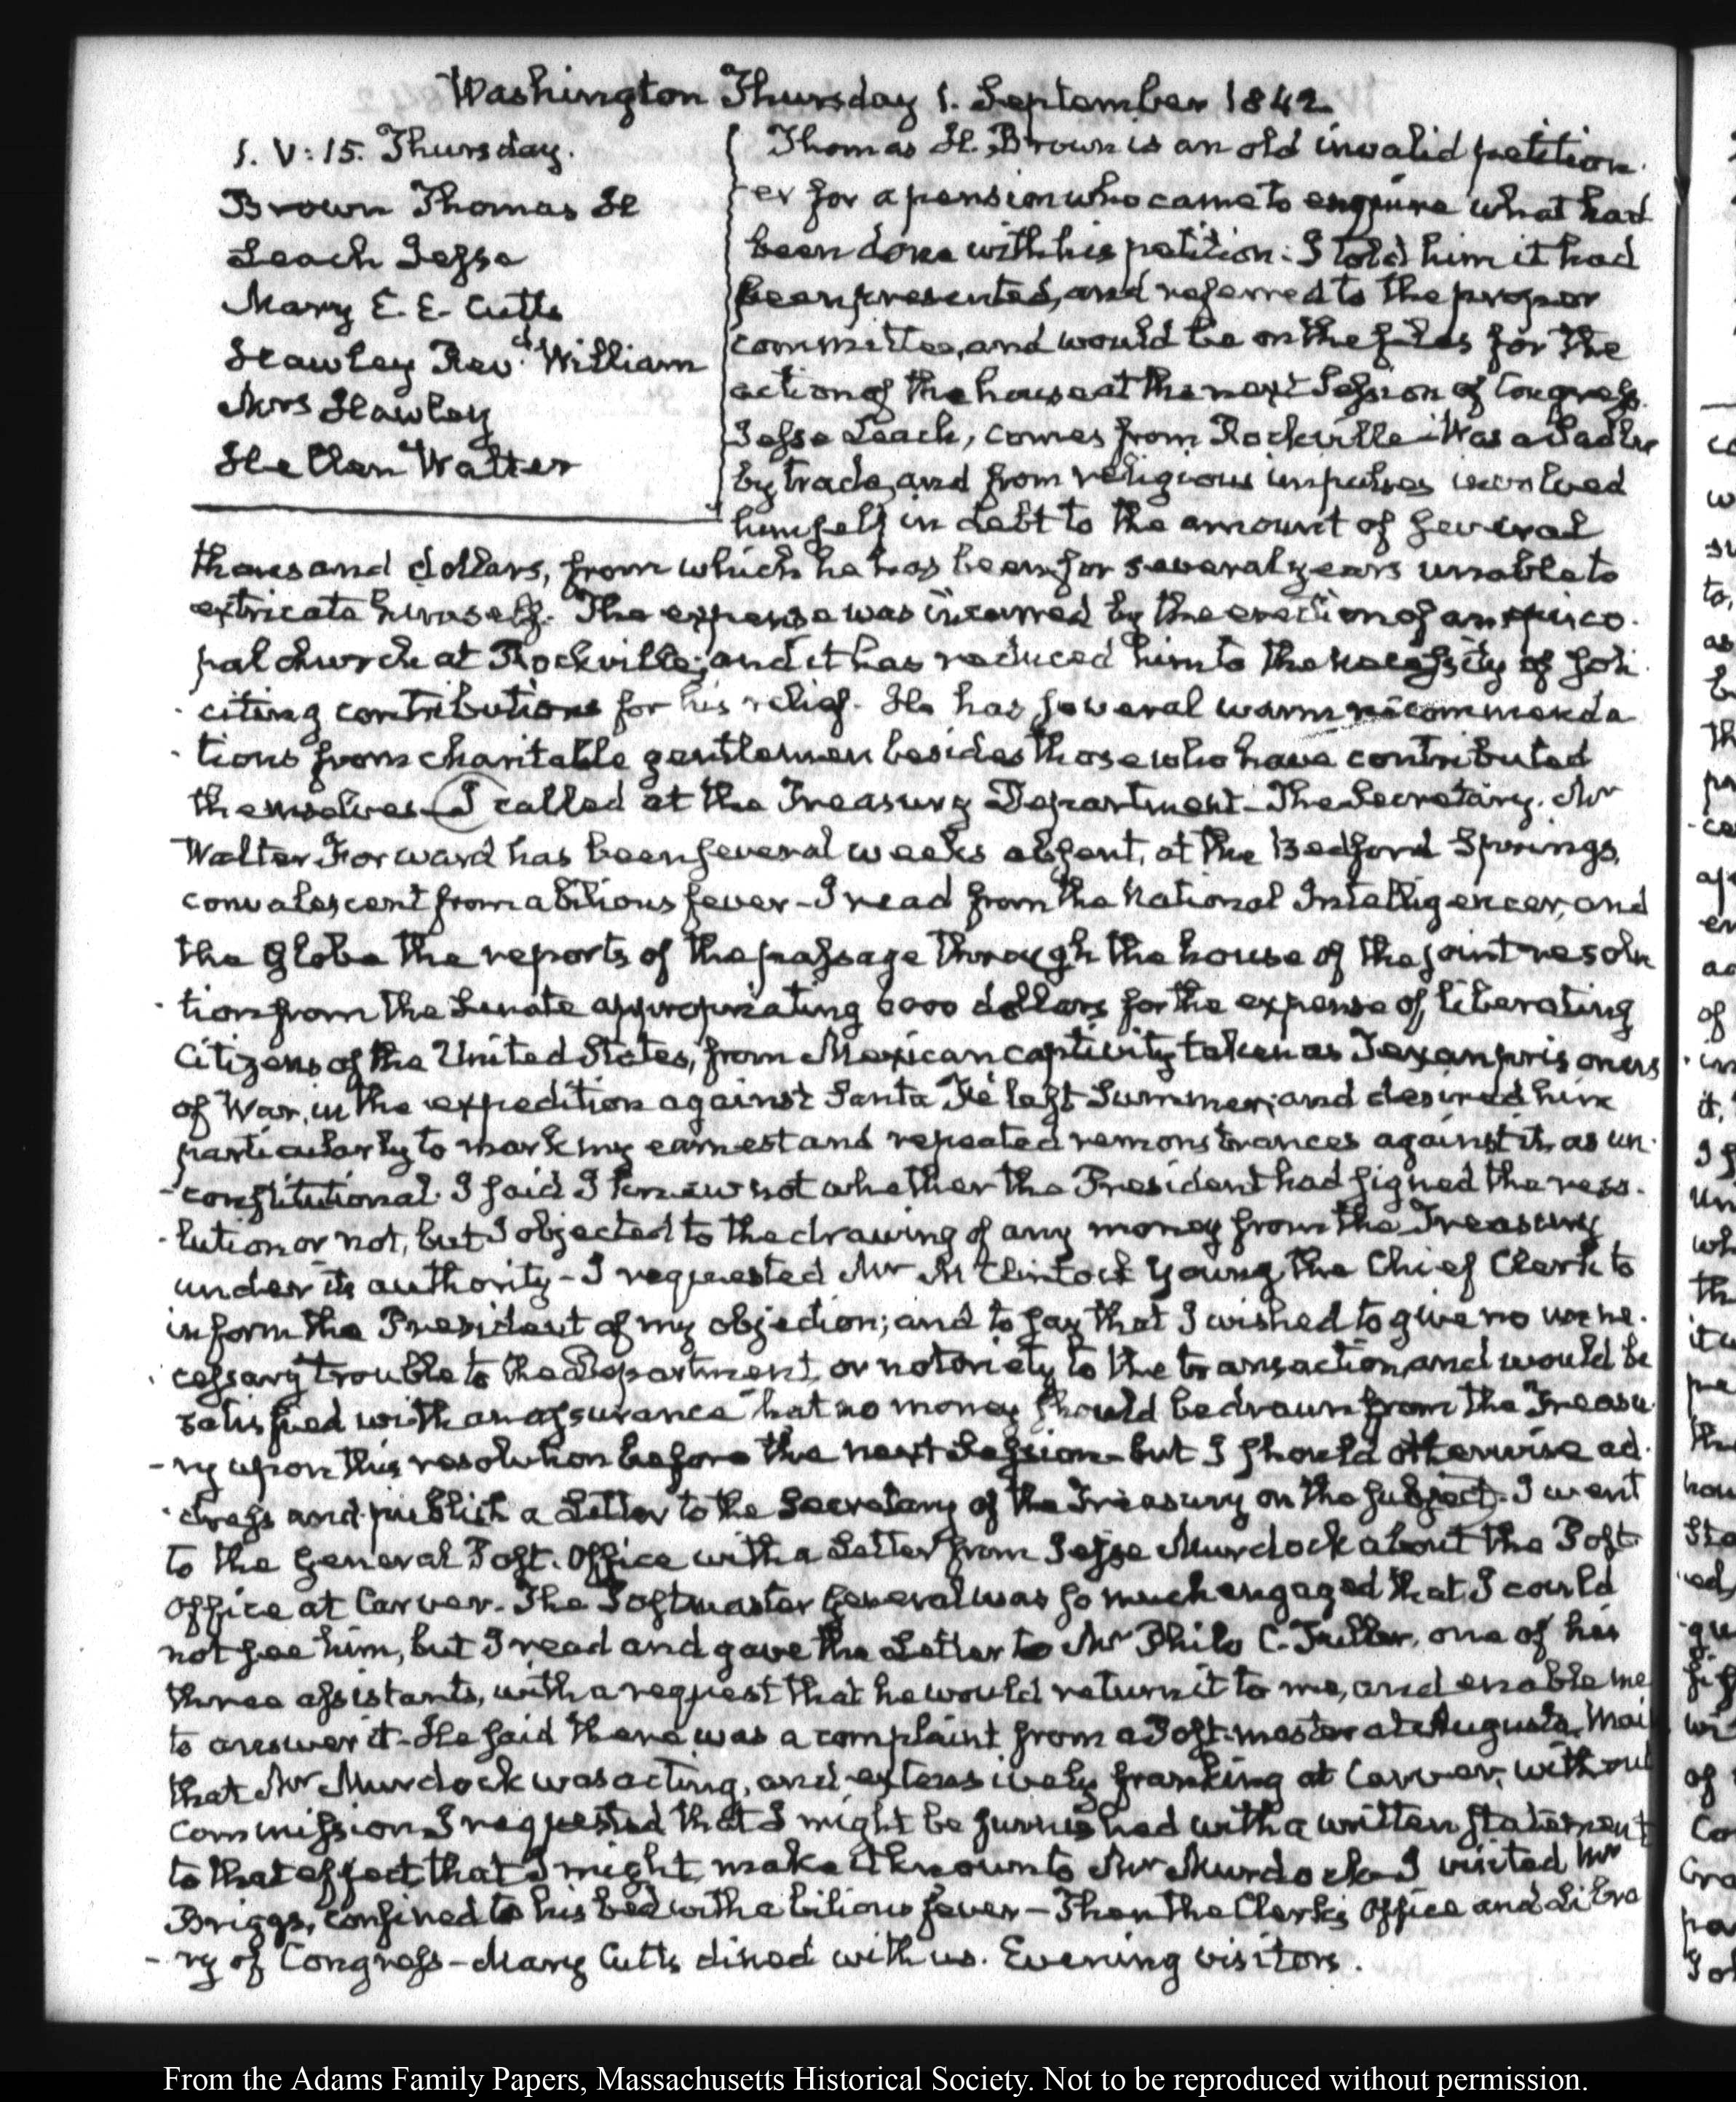 Washington Thursday 1. September 1842.
1. V:15. Thursday.
Brown Thomas H
Leach Jesse
Mary E. E. Cutts
Hawley Revd. William
Mrs Hawley
Hellen Walter
Thomas H. Brown is an old invalid petition-
er for a pension who came to enquire what had
been done with his petition: I told him it had
been presented, and referred to the proper
committee, and would be on the files for the
action of the house at the next Session of Congress.
Jesse Leach, comes from Rockville - Was a Sadler
by trade, and from religious impulses involved
himself in debt to the amount of several
thousand dollars, from which he has been for several years unable to
extricate himself. The expense was incurred by the erection of an episco-
pal church at Rockville; and it has reduced him to the necessity of soli-
-citing contributions for his relief. He has several warm recommenda-
-tions from charitable gentlemen besides those who have contributed
themselves - I called at the Treasury Department - The Secretary. Mr
Walter Forward has been several weeks absent, at the Bedford Springs,
convalescent from a bilious fever - I read from the National Intelligencer, and
the Globe the reports of the passage through the house of the joint resolu-
-tion from the Senate appropriating 6000 dollars for the expense of liberating
Citizens of the United States, from Mexican captivity taken as Texan prisoners
of War, in the expedition against Santa Fé last Summer; and desired him
particularly to mark my earnest and repeated remonstrances against it as un-
-constitutional. I said I knew not whether the President had signed the reso-
-lution or not, but I objected to the drawing of any money from the Treasury
under its authority - I requested Mr McClintock Young, the Chief Clerk to
inform the President of my objection; and to say that I wished to give no unne-
-cessary trouble to the Department, or notoriety to the transaction, and would be
satisfied with an assurance that no money should be drawn from the Treasu-
-ry upon this resolution before the next Session - but I should otherwise ad-
-dress and publish a Letter to the Secretary of the Treasury on the subject. I went
to the General Post-Office with a Letter from Jesse Murdock about the Post
Office at Carver. The Postmaster General was so much engaged that I could
not see him, but I read and gave the Letter to Mr Philo C. Fuller, one of his
three assistants, with a request that he would return it to me, and enable me
to answer it - He said there was a complaint from a Post-master at Augusta, Mai
that Mr Murdock was acting, and extensively franking at Carver, without
commission. I requested that I might be furnished with a written statement
to that effect that I might make it known to Mr Murdock - I visited Mr
Briggs, confined to his bed with a bilious fever - Then the Clerk's Office and Libra-
-ry of Congress - Mary Cutts dined with us. Evening visitors.
From the Adams Family Papers, Massachusetts Historical Society. Not to be reproduced without permission.